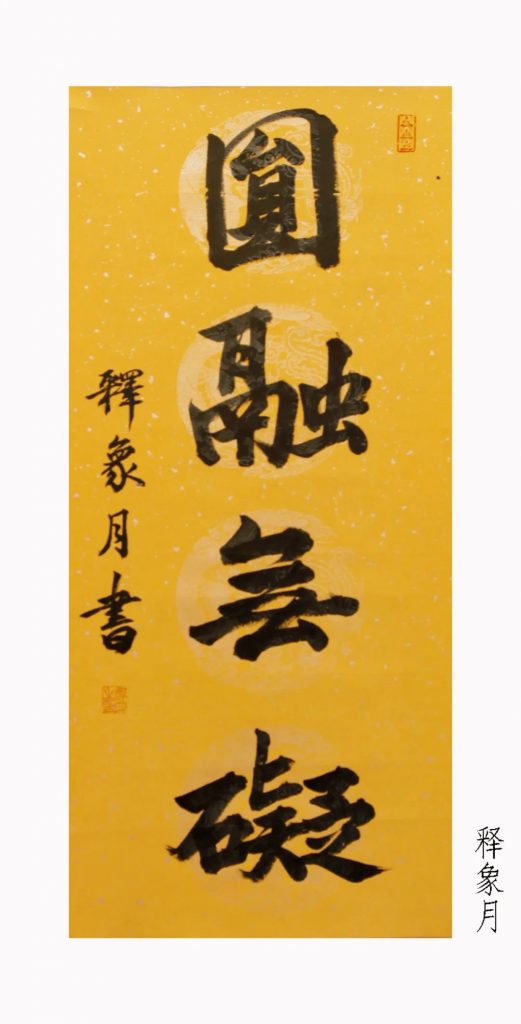 圓融無礙
釋象月書
释象月